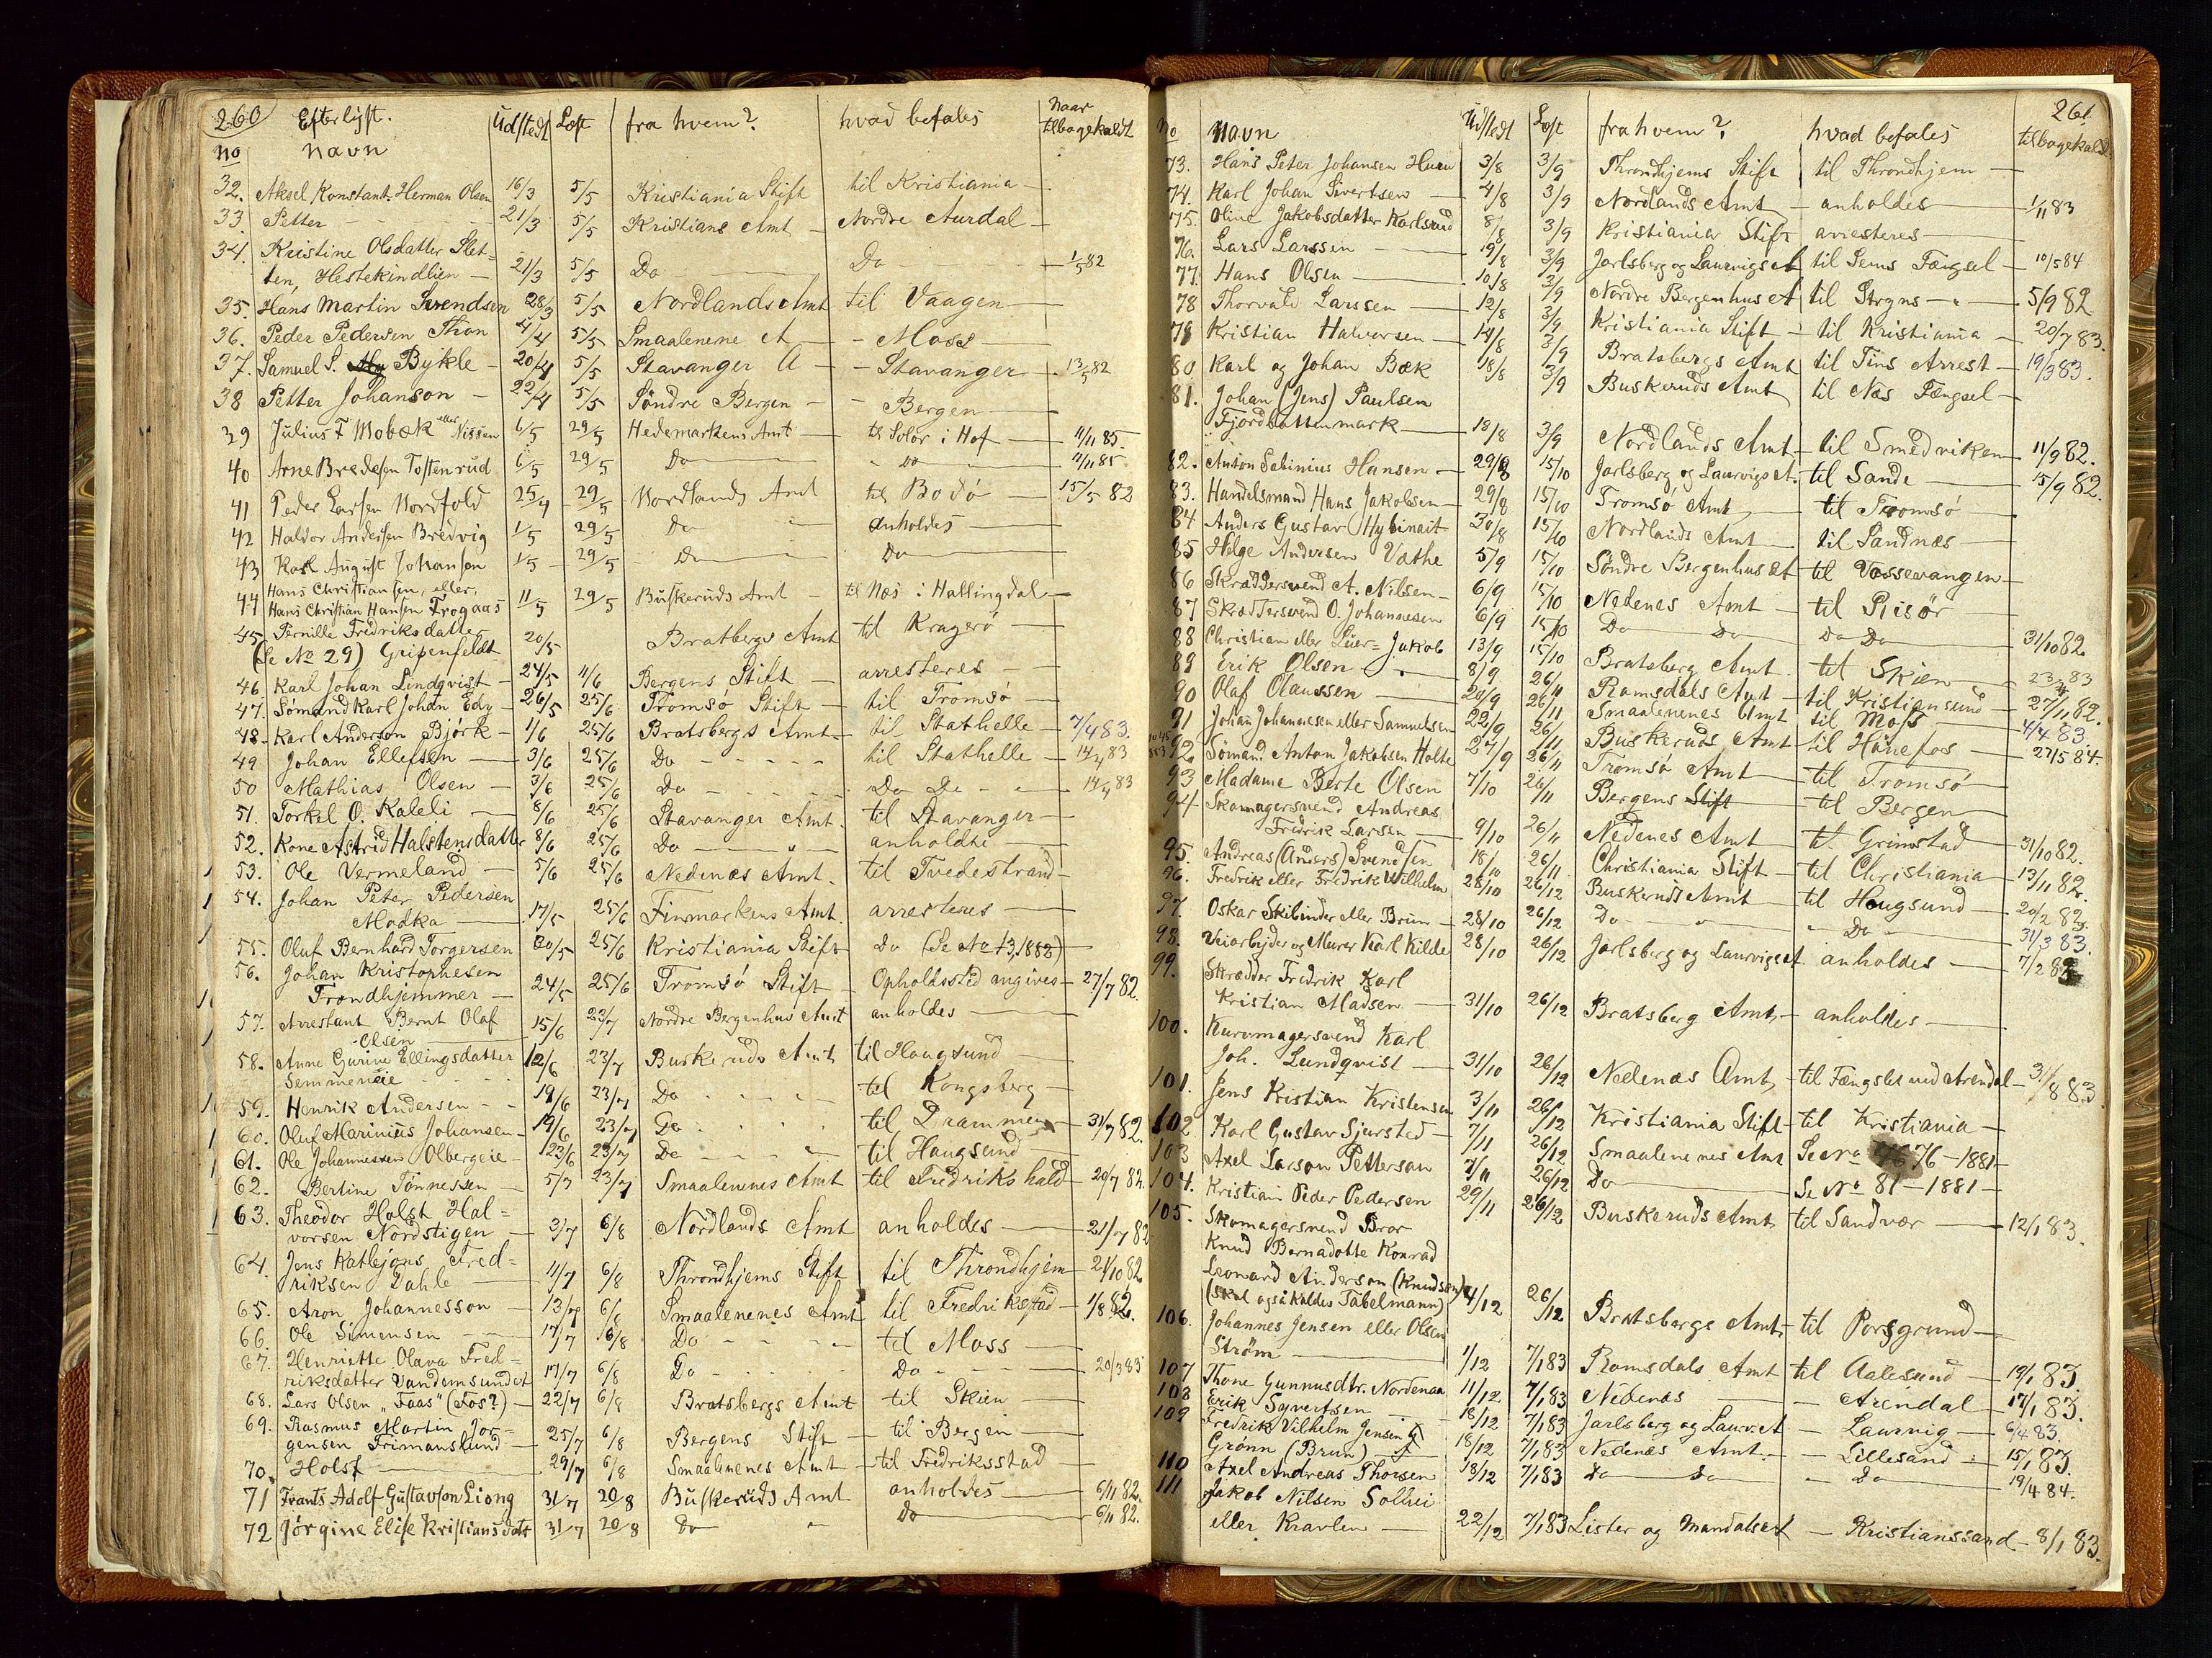 260 Efterlyst. Udstedt Læst fra hvem? hvad befales Naar tilbagekaldt
No Navn
32. Aksel Konstant. Herman Olsen 16/3 5/5 Kristiania Stift til Kristiania —
33. Petter - - - 21/3 5/5 Kristians Amt - Nordre Aurdal —
34. Kristine Olsdatter Slet-
ten, Hestekindlien — 21/3 5/5 Do Do 1/5 82
35. Hans Martin Svendsen 28/3 5/5 Nordlands Amt til Vaagen —
36. Peder Pedersen Thon 4/4 5/5 Smaalenene A — - Moss —
37. Samuel S. Bykle - 20/4 5/5 Stavanger A - - Stavanger 13/5 82
38 Petter Johanson - 22/4 5/5 Söndre Bergen - - Bergen —
39 Julius F Mobæk eller Nissen 6/5 29/5 Hedemarkens Amt — til Solör i Hof — 11/11 85.
40 Arne Bredesen Tostenrud 6/5 29/5 Do " Do " 11/11 85.
41 Peder Larsen Nordfold 25/4 29/5 Nordlands Amt til Bodö — 15/5 82
42 Haldor Andersen Bredvig 1/5 29/5 Do " anholdes —
43 Karl August Johansen 1/5 29/5 Do Do
44 Hans Christiansen, eller,
Hans Christian Hansen Frogaas 11/5 29/5 Buskeruds Amt - til Næs i Hallingdal —
45. Pernille Fredriksdatter
(Se No 29) Gripenfeldt 20/5 Bratbergs Amt til Kragerö —
46. Karl Johan Lindqvist - 24/5 11/6 Bergens Stift - arresteres —
47. Sömand Karl Johan Edy - 26/5 25/6 Tromsö Stift - til Tromsö —
48. Karl Anderson Bjórk - 1/6 25/6 Bratsbergs Amt - til Stathelle - 7/4 83.
49 Johan Ellefsen — 3/6 25/6 Do - - - - til Stathelle — 14/4 83
50 Mathias Olsen — 3/6 25/6 Do - - - - Do Do - - 14/4 83
51. Torkel O. Kaleli - 8/6 25/6 Stavanger Amt. til Stavanger —
52. Kone Astrid Halstensdatter 8/6 25/6 Do " anholdes —
53. Ole Vermeland — 5/6 25/6 Nedenæs Amt. til Tvedestrand —
54. Johan Peter Pedersen
Modka — 17/5 25/6 Finmarkens Amt. arresteres —
55. Oluf Bernhard Torgersen 20/5 25/6 Kristiania Stift Do (Se No 13, 1883)
56. Johan Kristophesen
Trondhjemmer — 24/5 25/6 Tromsö Stift - Opholdssted angives — 27/7 82.
57. Arrestant Bernt Olaf
Olsen 15/6 23/7 Nordre Bergenhus Amt anholdes —
58. Anne Gurine Ellingsdatter
Semmeneie - - 12/6 23/7 Buskeruds Amt til Haugsund
59. Henrik Andersen - - 19/6 23/7 Do - - - til Kongsberg —
60. Oluf Marinius Johansen - 19/6 23/7 Do - - - til Drammen 31/7 82.
61. Ole Johannessen Olbergeie - 23/6 23/7 Do - - - til Haugsund —
62. Bertine Tönnessen — 5/7 23/7 Smaalenenes Amt til Fredrikshald 20/7 82.
63. Theodor Holst Hal-
vorsen Nordstigen — 3/7 6/8 Nordlands Amt anholdes — 21/7 82
64. Jens Katlejons Fred-
riksen Dahle — 11/7 6/8 Throndhjems Stift til Throndhjem 21/10 82
65. Aron Johannesson — 13/7 6/8 Smaalenenes Amt til Fredriksstad — 1/8 82.
66. Ole Simensen — 17/7 6/8 Do - - - til Moss —
67. Henriette Olava Fred-
riksdatter Vandemsundet 17/7 6/8 Do - - Do - - 20/3 83
68. Lars Olsen "Faas" (Fos?) — 22/7 6/8 Bratsbergs Amt til Skien —
69. Rasmus Martin Jör-
gensen Frimanslund — 25/7 6/8 Bergens Stift - til Bergen —
70. Holst — 29/7 6/8 Smaalenenes Amt — til Fredriksstad —
71 Frants Adolf Gustavson Liong 31/7 20/8 Buskeruds Amt anholdes — 6/11 82.
72 Jörgine Elise Kristiansdatr 31/7 20/8 Do " Do 6/11 82.
261
No Navn Udstedt Læst fra hvem? hvad befales tilbagekaldt
73. Hans Peter Johansen 3/8 3/9 Throndhjems Stift til Throndhjem —
74. Karl Johan Sivertsen — 4/8 3/9 Nordlands Amt - anholdes — 1/11 83
75. Oline Jakobsdatter Karlsrud 8/8 3/9 Kristiania Stift arresteres —
76. Lars Larssen — 19/8 3/9 Jarlsberg og Laurvigs A til Sems Fængsel — 10/5 84
77. Hans Olsen — 10/8 3/9 Nordre Bergenhus A til Stryns — " 5/9 82
78 Thorvald Larssen — 12/8 3/9 Kristiania Stift - til Kristiania — 20/7 83.
79 Kristian Halvorsen — 14/8 3/9 Bratsbergs Amt til Tins Arrest — 19/3 83.
80 Karl og Johan Bæk 18/8 3/9 Buskeruds Amt til Næs Fængsel —
81. Johan (Jens) Paulsen
Fjordbottenmark — 18/8 3/9 Nordlands Amt - til Smedviken — 11/9 82.
82. Anton Sabinius Hansen — 29/8 15/10 Jarlsberg og Laurvigs A. til Sande — 15/9 82.
83. Handelsmand Hans Jakobsen — 29/8 15/10 Tromsö Amt til Tromsö —
84 Anders Gustav Hybinait 30/8 15/10 Nordlands Amt til Sandnæs —
85 Helge Andersen Væthe 5/9 15/10 Söndre Bergenhus At til Vossevangen —
86 Skræddersvend A. Nilsen — 6/9 15/10 Nedenes Amt - til Risör
87 Skræddersvend O. Johannesen 6/9 15/10 Do Do Do Do 31/10 82.
88 Christian eller Luer = Jakob 13/9 15/10 Bratsberg Amt til Skien — 83
89 Erik Olsen 8/9 26/11 Romsdals Amt - til Kristiansund — 27/11 82.
90 Olaf Olaussen — 20/9 26/11 Smaalenenes Amt til Moss 4/4 83.
91 Johan Johannesen eller Samuelsen 22/9 26/11 Buskeruds Amt til Hönefos — 27/5 84.
92 Sömand Anton Jakobsen Holte 27/9 26/11 Tromsö Amt til Tromsö
93 Madame Berte Olsen 7/10 26/11 Bergens Stift til Bergen —
94 Skomagersvend Andreas
Fredrik Larsen — 9/10 26/11 Nedenes Amt - til Grimstad 31/10 82.
95. Andreas (Anders) Svendsen 18/10 26/11 Christiania Stift - til Christiania — 13/11 82.
96. Fredrik eller Fredrik Wilhelm 28/10 26/12 Buskeruds Amt til Hougsund — 20/2 83.
97. Oskar Skibinder eller Brun — 28/10 26/12 Do " " Do 31/3 83.
98. Veiarbejder og Murer Karl Kilde 28/10 26/12 Jarlsberg og Laurvigs At anholdes — 7/2 83
99. Skrædder Fredrik Karl
Kristian Madsen — 31/10 26/12 Bratsberg Amt - anholdes —
100. Kurvmagersvend Karl
Joh. Lundqvist — 31/10 26/12 Nedenæs Amt - til Fængslet ved Arendal — 31/8 83
101. Jens Kristian Kristensen 3/11 26/12 Kristiania Stift - til Kristiania —
102 Karl Gustav Sjursted — 7/11 26/12 Smaalenenes Amt Se No 76 - 1881 -
103 Axel Larson Petterson 7/11 26/12 Do Se No 81 - 1881 —
104. Kristian Peder Pedersen 29/11 26/12 Buskeruds Amt til Sandsvær — 12/1 83.
105. Skomagersvend Bror
Knud Bernadotte Konrad
Leonard Anderson (Knudsen)
(skal også kaldes Tabelmann) 4/12 26/12 Bratsbergs Amt - til Porsgrund —
106. Johannes Jensen eller Olsen
Ström — 1/12 7/1 83 Romsdals Amt til Aalesund — 19/1 83.
107 Thone Gunnusdtr. Nordenaa 11/12 7/1 83 Nedenæs — - Arendal — 17/1 83.
108 Erik Syvertsen — 18/12 7/1 83 Jarlsberg og Laurv. At - Laurvig — 6/4 83.
109 Fredrik Vilhelm Jensen
Grönn (Brun) — 18/12 7/1 83 Nedenæs Amt - - Lillesand : 15/1 83.
110 Axel Andreas Thorsen 18/12 7/1 83 Do — Do " Do 19/4 84.
111 Jakob Nilsen Solhei
eller Kravlen — 22/12 7/1 83 Lister og Mandals At — Kristianssand — 8/1 83.